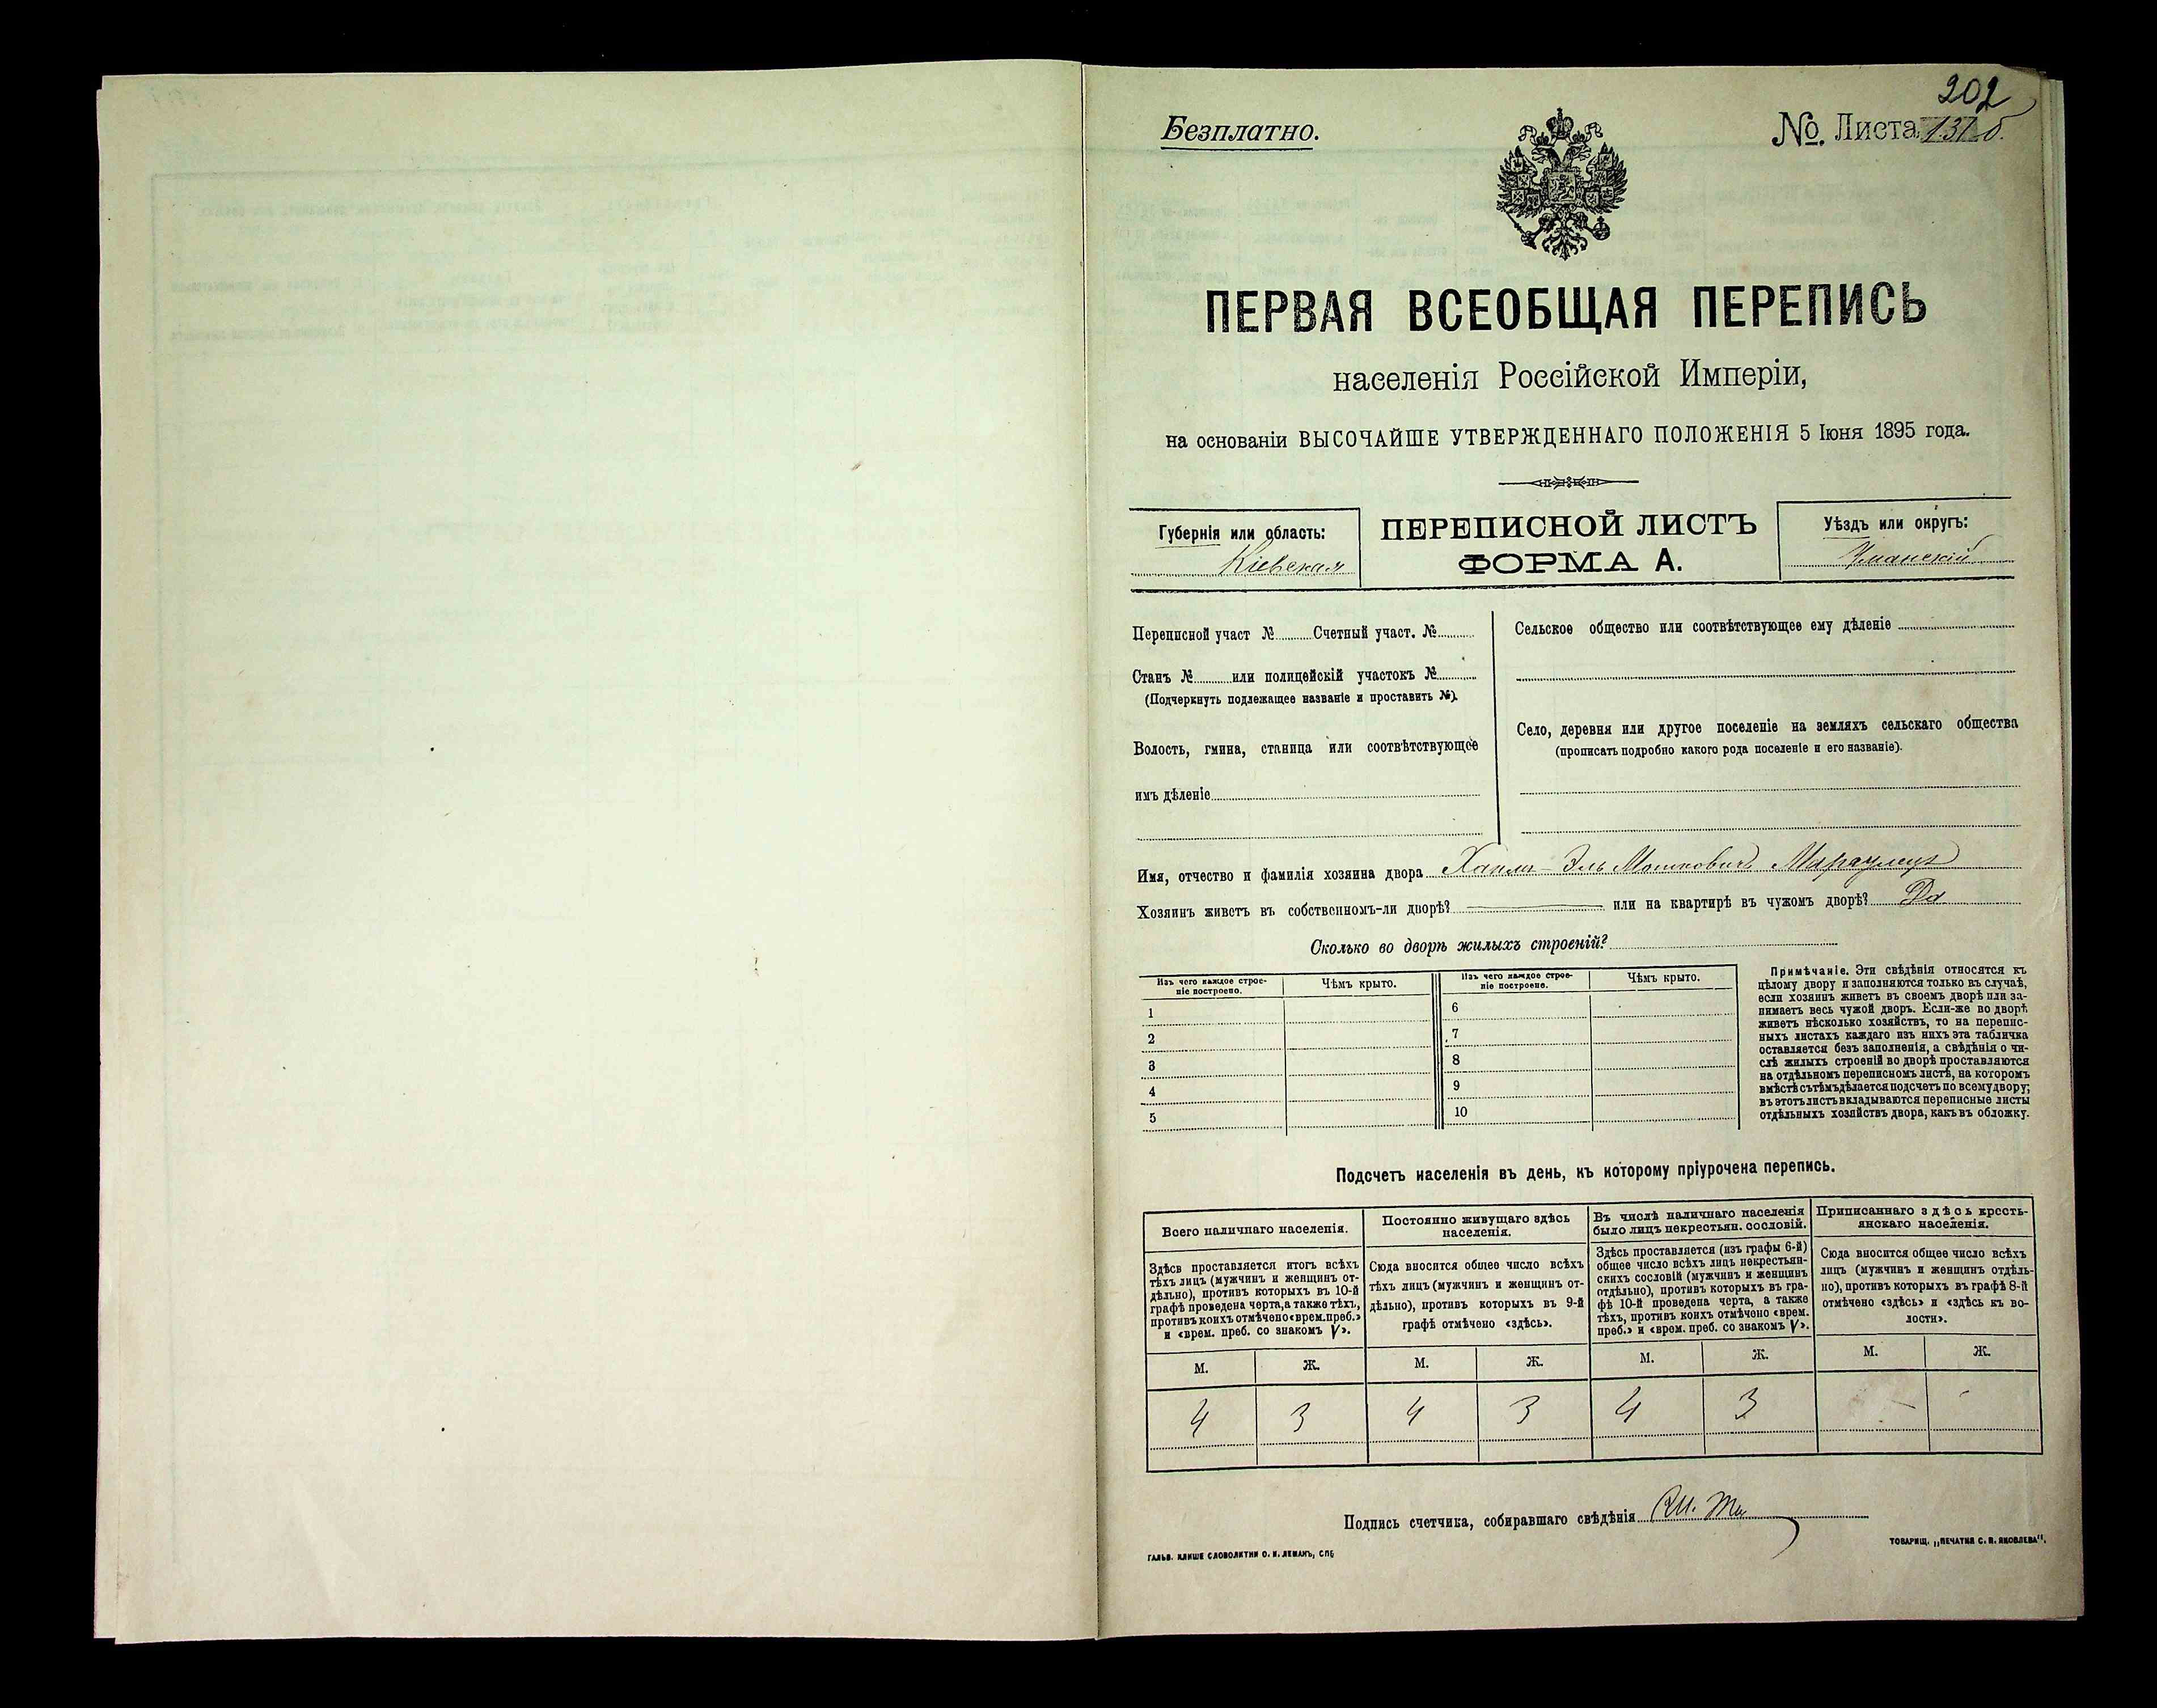 202
Безплатно.
№. Листа 137 б.
ПЕРВАЯ ВСЕОБЩАЯ ПЕРЕПИСЬ
населенія Россійской Имперіи,
на основаніи ВЫСОЧАЙШЕ УТВЕРЖДЕННАГО ПОЛОЖЕНІЯ 5 Іюня 1895 года.
Губернія или область:
Кіевская
ПЕРЕПИСНОЙ ЛИСТЪ
ФОРМА А.
Уѣздъ или округъ:
Уманскій
Переписной участ № Счетный участ. №
Станъ № или полицейскій участокъ №
(Подчеркнуть подлежащее названіе и проставить №).
Волость, гмина, станица или соотвѣтствующее
имъ дѣленіе
Сельское общество или соотвѣтствующее ему дѣленіе
Село, деревня или другое поселеніе на земляхъ сельскаго общества
(прописать подробно какого рода поселеніе и его названіе).
Имя, отчество и фамилія хозяина двора Мошковичъ
Хозяинъ живетъ въ собственномъ-ли дворѣ? или на квартирѣ въ чужомъ дворѣ? Да
Сколько во дворѣ жилыхъ строеній?
Изъ чего каждое строе-
ніе построено.
Чѣмъ крыто.
Изъ чего каждое строе-
ніе построено.
Чѣмъ крыто.
1
2
3
4
5
6
7
8
9
10
Примѣчаніе. Эти свѣдѣнія относятся къ
цѣлому двору и заполняются только въ случаѣ,
если хозяинъ живетъ въ своемъ дворѣ или за-
нимаетъ весь чужой дворъ. Если-же во дворѣ
живетъ нѣсколько хозяйствъ, то на перепис-
ныхъ листахъ каждаго изъ нихъ эта табличка
оставляется безъ заполненія, а свѣдѣнія о чи-
слѣ жилыхъ строеній во дворѣ проставляются
на отдѣльномъ переписномъ листѣ, на которомъ
вмѣстѣ съ тѣмъ дѣлается подсчетъ по всему двору;
въ этотъ листъ вкладываются переписные листы
отдѣльныхъ хозяйствъ двора, какъ въ обложку.
Подсчетъ населенія въ день, къ которому пріурочена перепись.
Всего наличнаго населенія.
Здѣсь проставляется итогъ всѣхъ
тѣхъ лицъ (мужчинъ и женщинъ от-
дѣльно), противъ которыхъ въ 10-й
графѣ проведена черта, а также тѣхъ,
противъ коихъ отмѣчено «врем. преб.»
и «врем. преб. со знакомъ V».
Постоянно живущаго здѣсь
населенія.
Сюда вносится общее число всѣхъ
тѣхъ лицъ (мужчинъ и женщинъ от-
дѣльно), противъ которыхъ въ 9-й
графѣ отмѣчено «здѣсь».
Въ числѣ наличнаго населенія
было лицъ некрестьян. сословій.
Здѣсь проставляется (изъ графы 6-й)
общее число всѣхъ лицъ некрестьян-
скихъ сословій (мужчинъ и женщинъ
отдѣльно), противъ которыхъ въ гра-
фѣ 10-й проведена черта, а также
тѣхъ, противъ коихъ отмѣчено «врем.
преб.» и «врем. преб. со знакомъ V».
Приписаннаго здѣсь кресть-
янскаго населенія.
Сюда вносится общее число всѣхъ
лицъ (мужчинъ и женщинъ отдѣль-
но), противъ которыхъ въ графѣ 8-й
отмѣчено «здѣсь» и «здѣсь къ во-
лости».
М. Ж. М. Ж. М. Ж. М. Ж.
4 3 4 3 4 3 - -
Подпись счетчика, собиравшаго свѣдѣнія
ГАЛЬВ. КЛИШЕ СЛОВОЛИТНИ О. И. ЛЕМАНЪ, СПБ
ТОВАРИЩ. „ПЕЧАТНЯ С. П. ЯКОВЛЕВА".